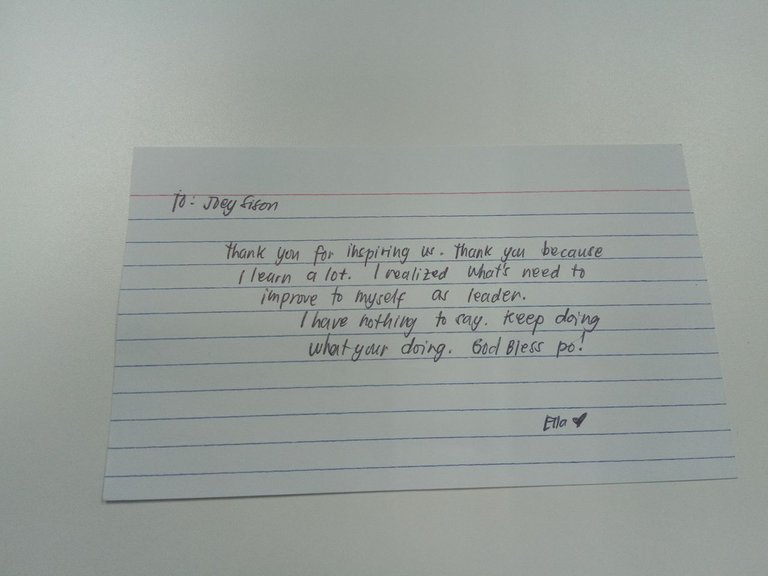 To: Joey Sison
Thank you for inspiring us. Thank you because
I learn a lot. I realized what's need to
improve to myself as leader.
I have nothing to say. Keep doing
what your doing. God Bless po!
Ella ♥